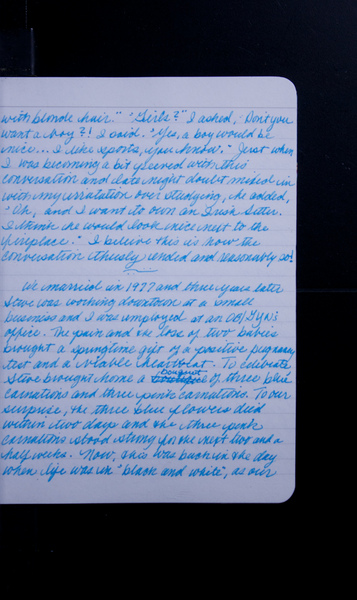 with blonde hair." "Girls?" I asked, "Don't you
want a boy?! I said. "Yes, a boy would be
nice... I like sports, you know." Just when
I was becoming a bit peeved with this
conversation and late night doubt mixed in
with my irritation over studying, he added,
"Oh, and I want to own an Irish Setter.
I think he would look nice next to the
fireplace." I believe this is how the
conversation ended and reasonably so!
We married in 1977 and three years later
Steve was working downtown at a small
business and I was employed at an OB/Gyn's
office. The pain and the loss of two babies
brought a springtime gift of a positive pregnancy
test and a viable heartbeat. To celebrate
Steve brought home a bouquet of three blue
carnations and three pink carnations. To our
surprise, the three blue flowers died
within two days and the three pink
carnations stood strong for the next two and a
half weeks. Now, this was back in the day
when life was in "black and white", as our